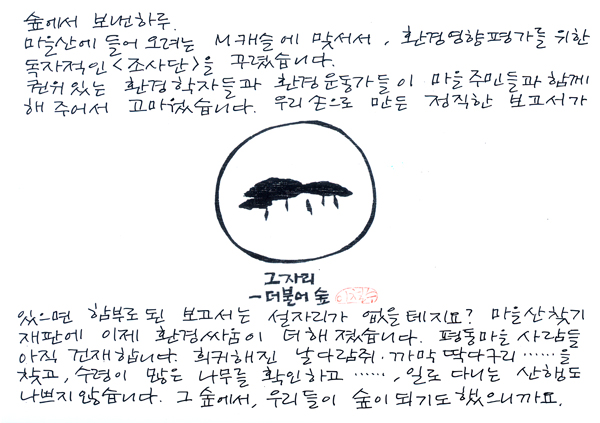 숲에서 보낸하루.
마을산에 들어 오려는 M캐슬에 맞서서, 환경영향평가를 위한
독자적인 <조사단>을 꾸렸습니다.
권위있는 환경학자들과 환경운동가들이 마을주민들과 함께
해 주어서 고마웠습니다. 우리 손으로 만든 정직한 보고서가
그 자리
- 더불어 숲
있으면 함부로 된 보고서는 설자리가 없을테지요? 마을산찾기
재판에 이제 환경싸움이 더해졌습니다. 평동마을 사람들
아직 건재합니다. 희귀해진 날다람쥐·까막딱다구리……을
찾고, 수령이 많은 나무를 확인하고……, 일로 다니는 산행도
나쁘지 않습니다. 그 숲에서, 우리들이 숲이 되기도 했으니까요.